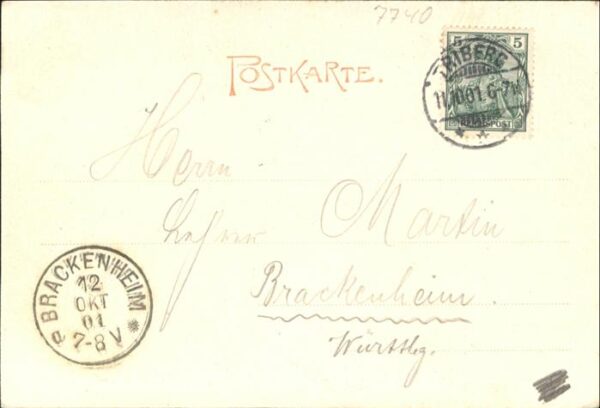 7740
POSTKARTE.
5 5
TRIBERG
11.10.01.6-7N.
REICHSPOST
Herrn
Lehrer Martin
Brackenheim.
Württbg.
BRACKENHEIM
12
OKT
01
7-8V
a